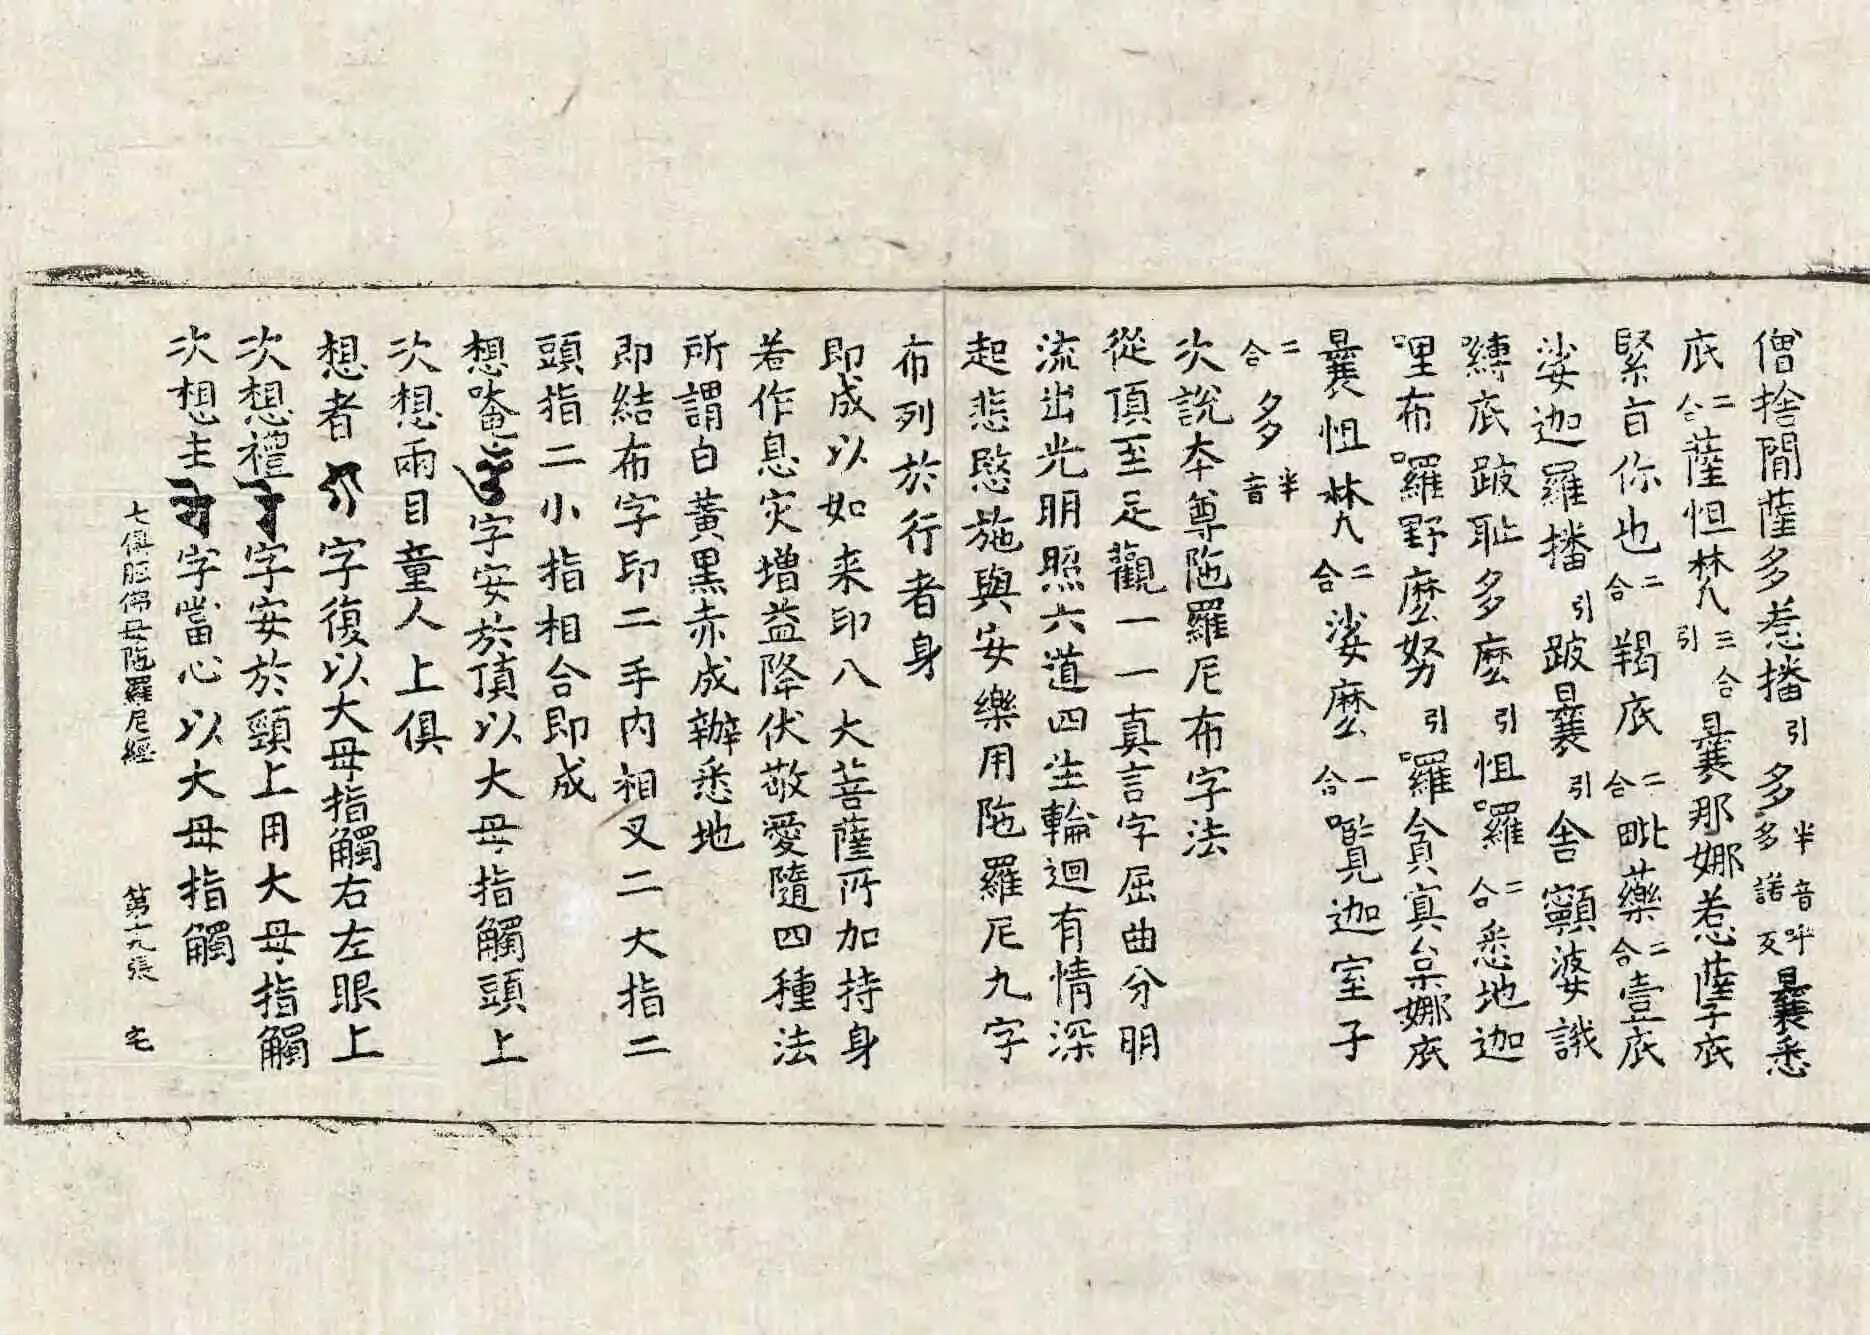 僧捨間薩多惹播引多半音呼多諾反曩悉
底二合薩怛梵三合引曩那娜惹薩孳底
緊旨你也二合羯底二合毗藥二合壹底
娑迦羅播引跛曩引舍顙婆誐
嚩底跛耻多麼引怛囉二合悉地迦
哩布囉野麼努引囉貪寘枲娜底
曩怛梵二合娑麼一合㘕迦室子
二合多半音
次說夲尊陁羅尼布字法
從頂至足觀一一真言字屈曲分明
流出光明照六道四生輪迴有情深
起悲愍施與安樂用陁羅尼九字
布列於行者身
即成以如来印八大菩薩所加持身
若作息灾增益降伏敬愛隨四種法
所謂白黃黑赤成辦悉地
即結布字印二手內相叉二大指二
頭指二小指相合即成
想唵字安於頂以大母指觸頭上
次想兩目童人上俱
想者字復以大母指觸右左眼上
次想禮字安於頸上用大母指觸
次想主字當心以大母指觸
七俱胝佛母陁羅尼經 第十九張 宅